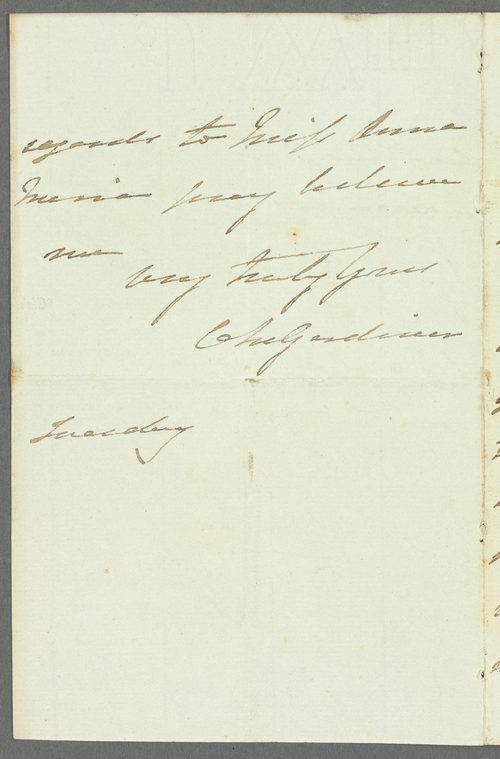 regards to Miss Anna
Maria pray believe
me
very truly Yours
Gardiner
Tuesday